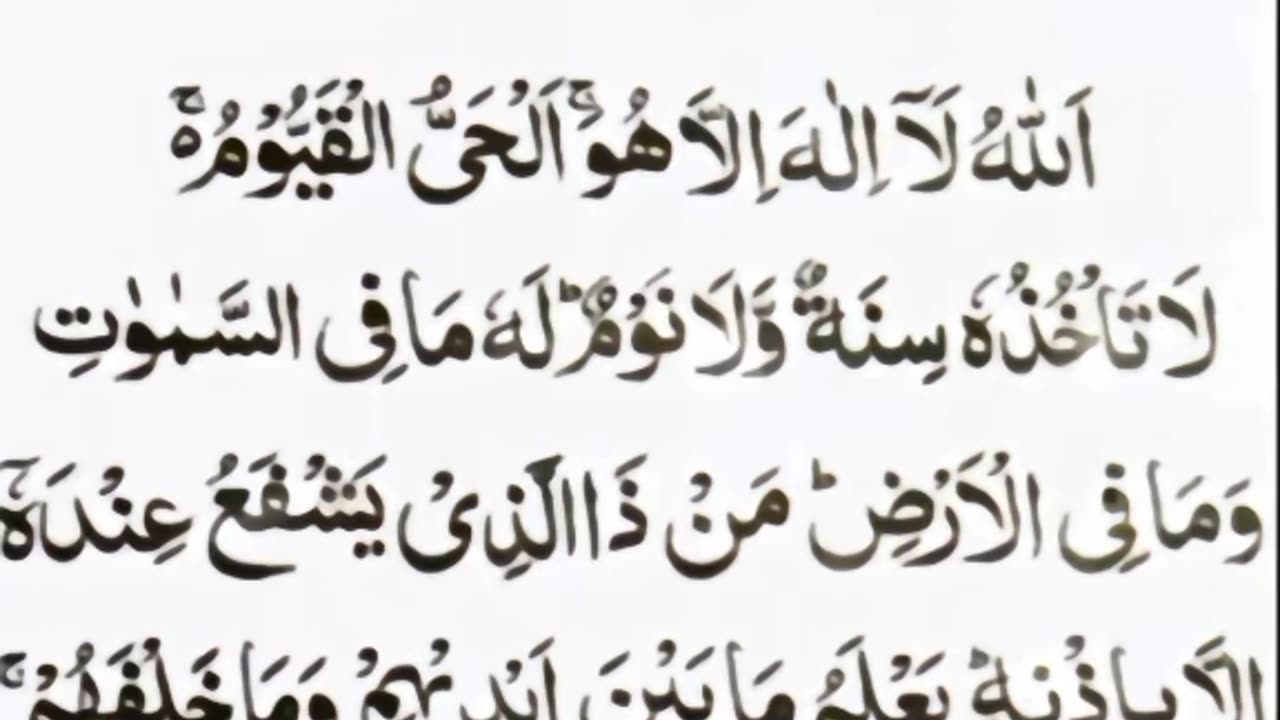 اَللّٰهُ لَآ اِلٰهَ اِلَّا هُوَ ۚ اَلْحَیُّ الْقَیُّوْمُ ۚ
لَا تَاْخُذُهٗ سِنَةٌ وَّلَا نَوْمٌ ؕ لَهٗ مَا فِی السَّمٰوٰتِ
وَمَا فِی الْاَرْضِ ؕ مَنْ ذَا الَّذِیْ یَشْفَعُ عِنْدَهٗۤ
اِلَّا بِاِذْنِهٖ ؕ یَعْلَمُ مَا بَیْنَ اَیْدِیْهِمْ وَمَا خَلْفَهُمْ ۚ